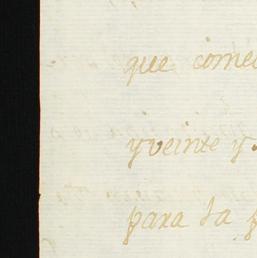 que comed
y veinte y
para la